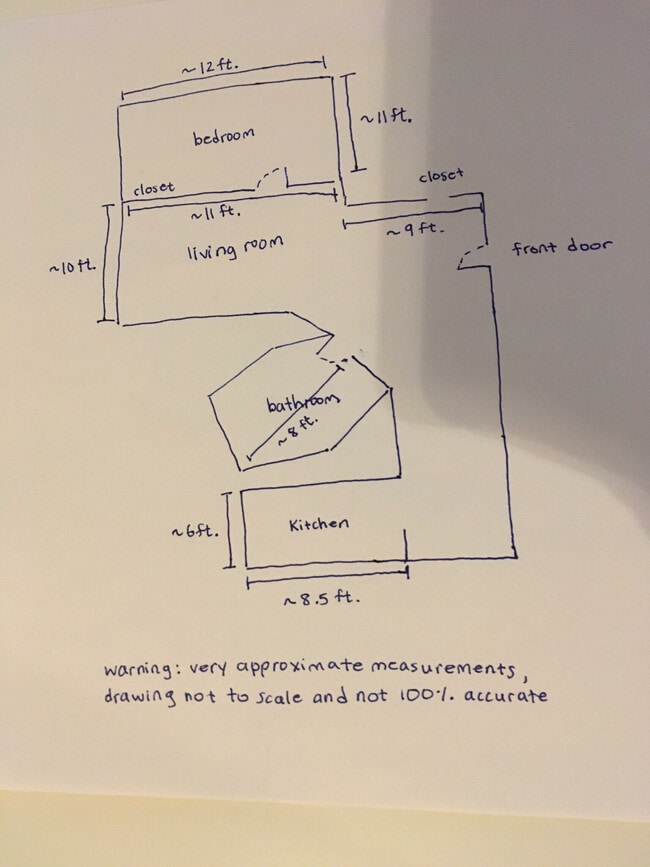 ~12 ft.
~11 ft.
bedroom
closet
closet
~11 ft.
~9 ft.
living room
front door
~10 ft.
bathroom
~8 ft.
~6ft.
Kitchen
~8.5 ft.
warning: very approximate measurements,
drawing not to scale and not 100% accurate